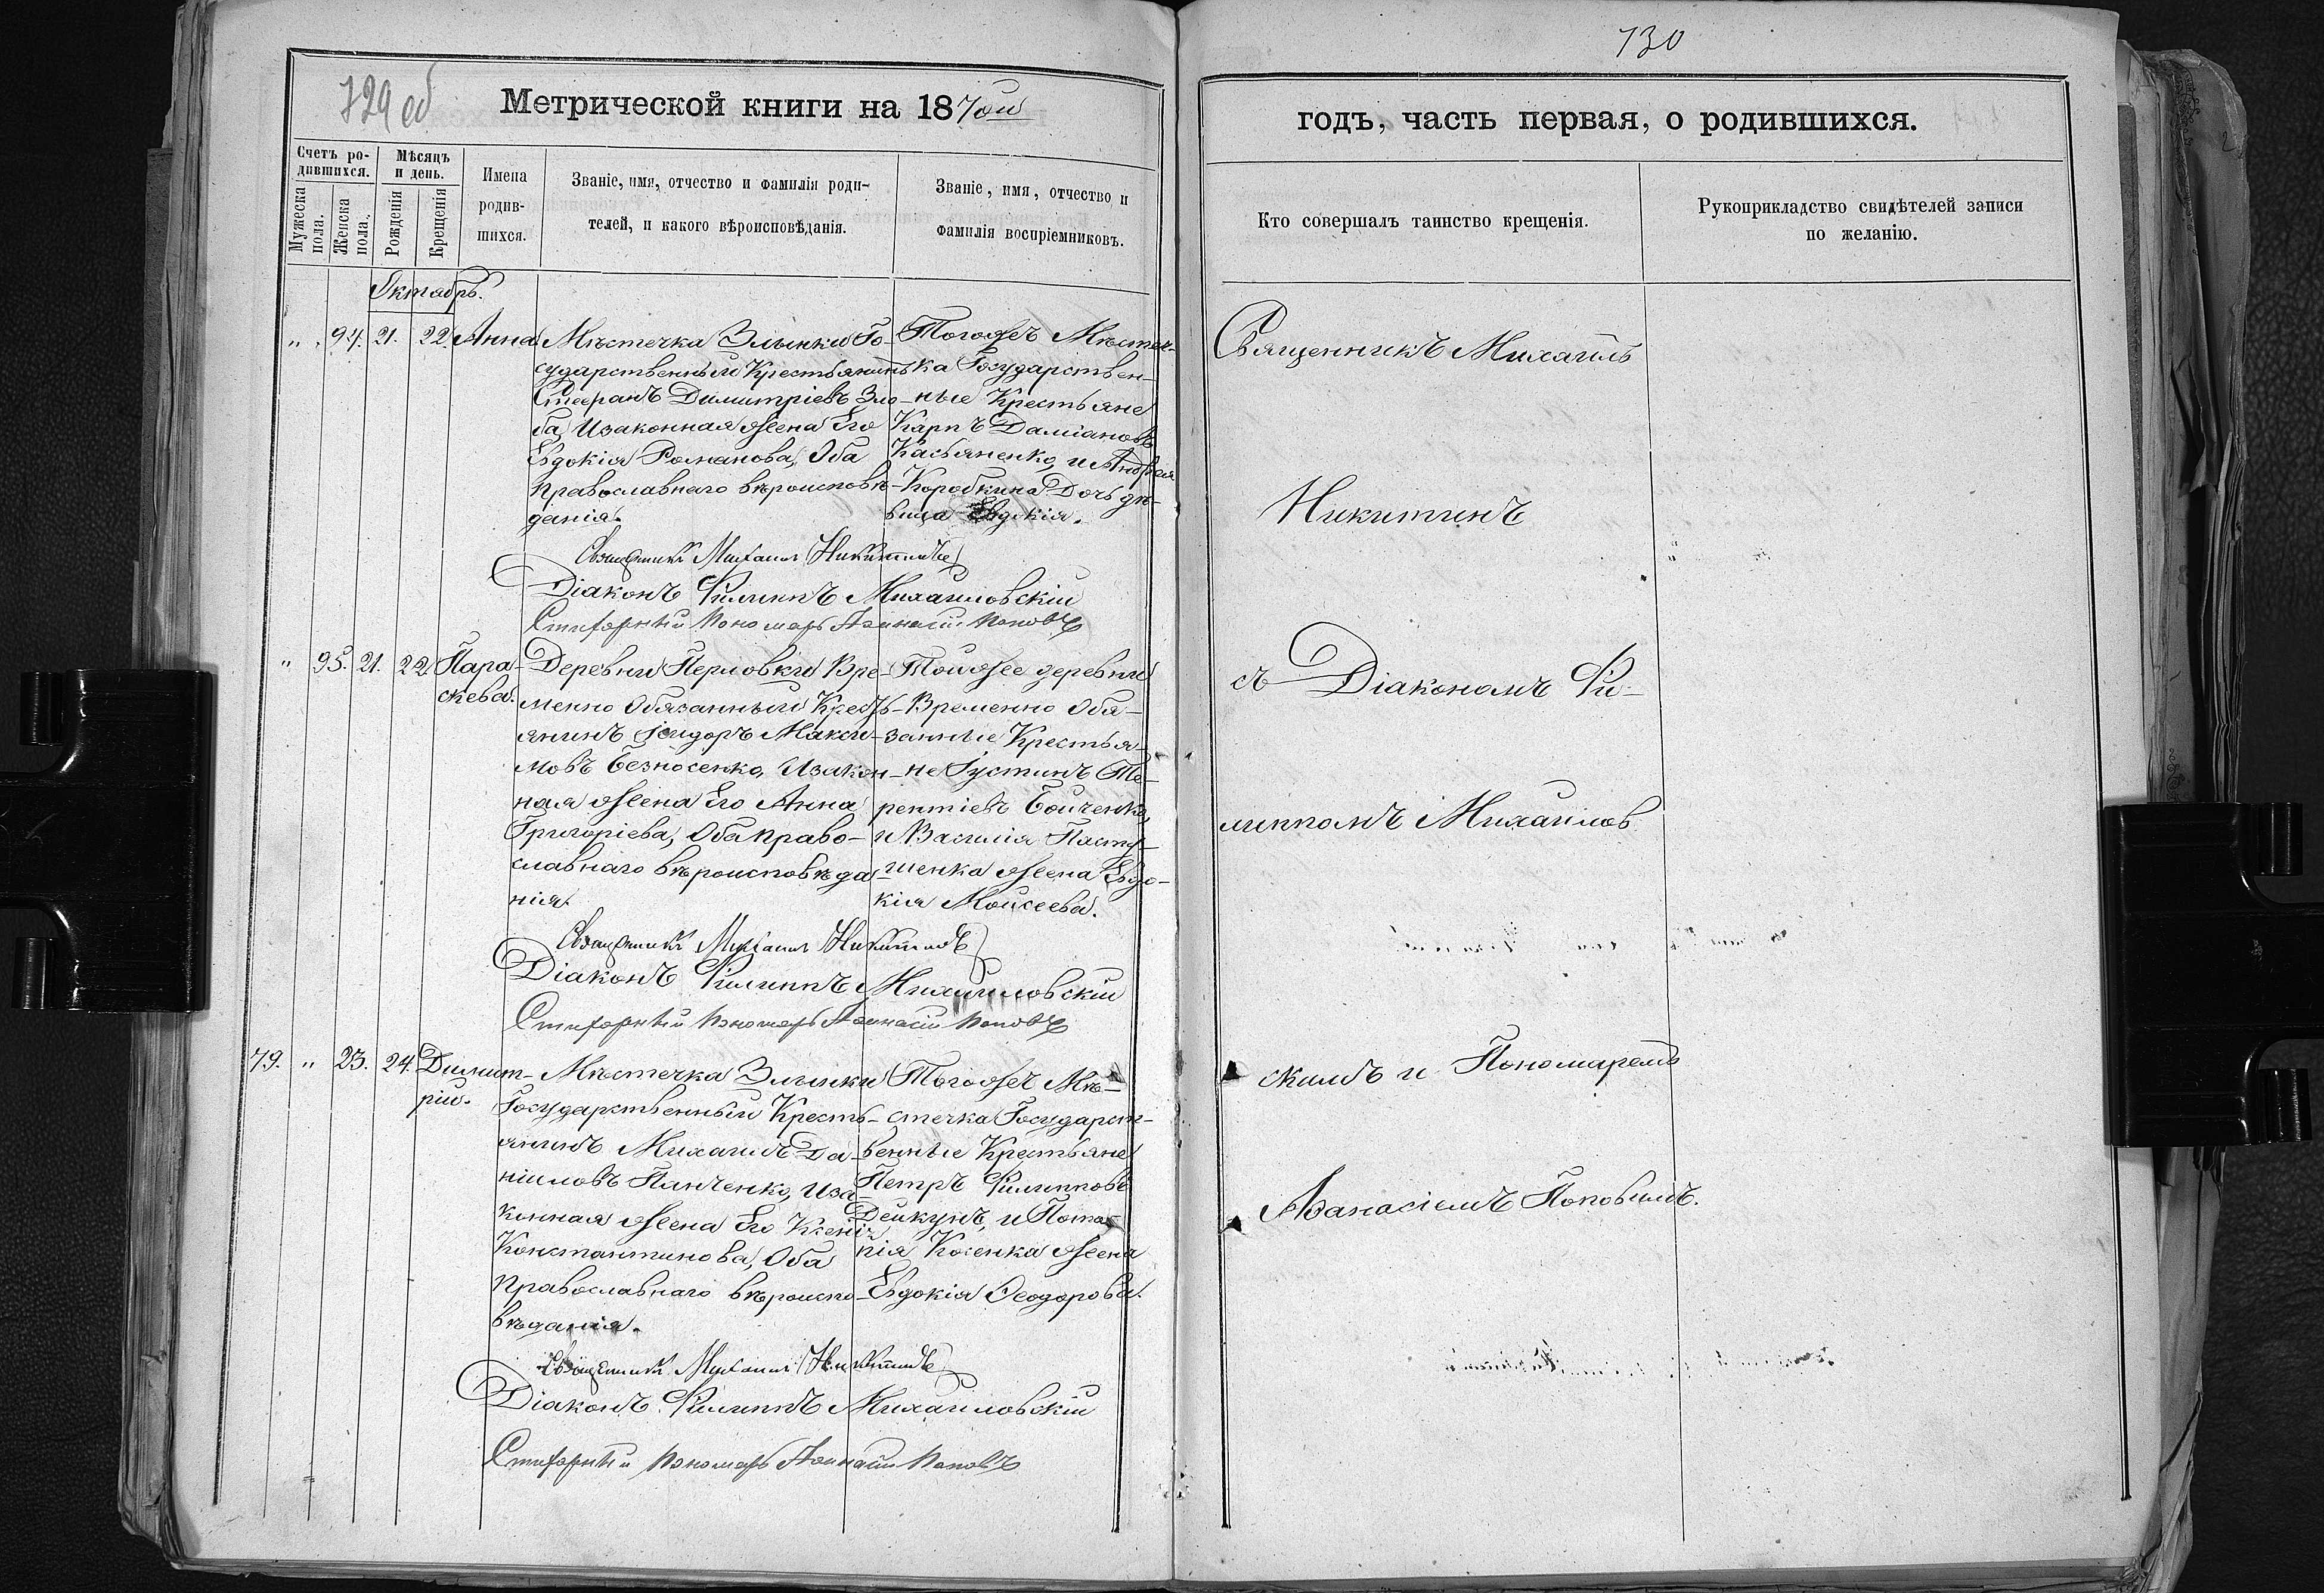 729 об
Метрической книги на 1870ый
Счетъ ро-
дившихся.
Мужеска
пола.
Женска
пола.
Мѣсяцъ
и день.
Рожденія
Крещенія
Имена
родив-
шихся.
Званіе, имя, отчество и фамилія роди-
телей, и какого вѣроисповѣданія.
Званіе, имя, отчество и
фамилія воспріемниковъ.
Октябрь.
" 94. 21. 22. Анна
Мѣстечка Злынки Го-
сударственный Крестьянинъ
Стефанъ Димитріевъ Зло-
ба, Изаконная жена Его
Евдокія Романова, Оба
православнаго вѣроисповѣ-
данія.
Тогожъ Мѣстеч-
ка Государствен-
ные Крестьяне
Карпъ Даміановъ
Касьяненко, и Андрея
Коробкина Дочь дѣ-
вица Евдокія.
Священникъ Михаилъ Никитинъ
Діаконъ Филиппъ Михайловскій
Стихарный Пономарь Аѳанасій Поповъ
" 95. 21. 22. Пара-
скева.
Деревни Перловки Вре-
менно Обязанный Кресть-
янинъ Ісидоръ Макси-
мовъ Безносенко, Изакон-
ная жена Его Анна
Григоріева, Оба право-
славнаго вѣроисповѣда
нія.
Тойже деревни
Временно Обя-
занные Крестья-
не Іустинъ Те-
рентіевъ Бойченко,
и Василія Пасту-
шенка жена Евдо-
кія Моисеева.
Священникъ Михаилъ Никитинъ
Діаконъ Филиппъ Михайловскій
Стихарный Пономарь Аѳанасій Поповъ
79. " 23. 24. Димит-
рій.
Мѣстечка Злынки
Государственный Кресть-
янинъ Михаилъ Да-
ніиловъ Панченко, Иза-
конная жена Его Ксенія
Константинова, Оба
Православнаго вѣроиспо-
вѣданія.
Тогожъ Мѣ-
стечка Государст-
венные Крестьяне
Петръ Филипповъ
Дейкунъ, и Пота-
пія Косенка жена
Евдокія Ѳеодорова.
Священникъ Михаилъ Никитинъ
Діаконъ Филиппъ Михайловскій
Стихарный Пономарь Аѳанасій Поповъ
130
годъ, часть первая, о родившихся.
Кто совершалъ таинство крещенія.
Рукоприкладство свидѣтелей записи
по желанію.
Священникъ Михаилъ
Никитинъ
съ Діакономъ Фи-
липпомъ Михайлов
скимъ и Пономаремъ
Аѳанасіемъ Поповымъ.